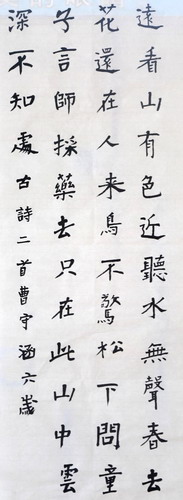 遠看山有色近聽水無聲春去
花還在人來鳥不驚松下問童
子言師採藥去只在此山中雲
深不知處古詩二首曹宇涵六歲